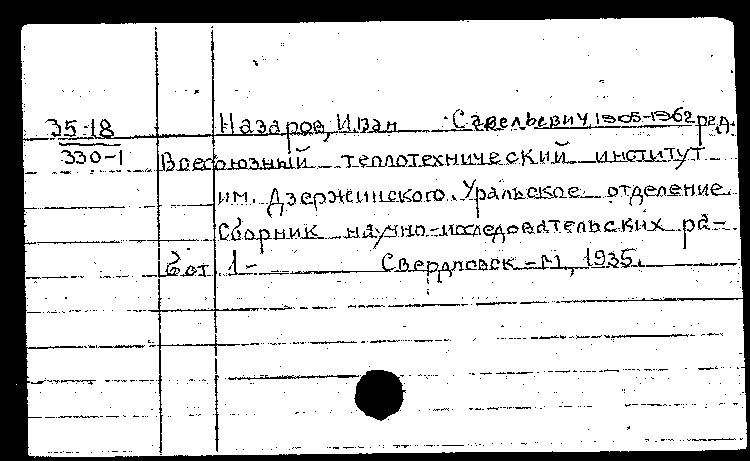 35-18
330-1
Назаров, Иван Савельевич, 1905-1962 ред.
Всесоюзный теплотехнический институт
им. Дзержинского. Уральское отделение.
Сборник научно-исследовательских ра-
бот 1- Свердловск - М., 1935.